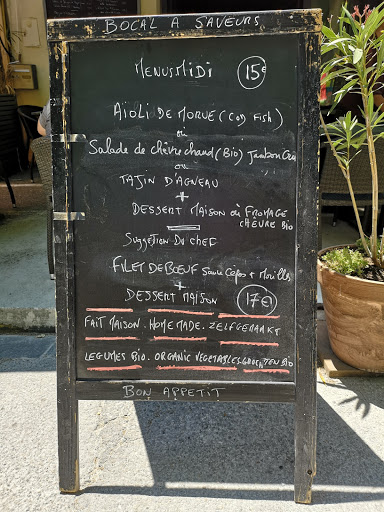 BOCAL A SAVEURS
MENUS MIDI 15€
AÏOLI DE MORUE (COD FISH)
ou
Salade de chèvre chaud (Bio) Jambon Cru
ou
TAJIN D'AGNEAU
+
DESSERT MAISON où FROMAGE
CHÈVRE BIO
Suggestion Du CHEF
FILET DE BŒUF Sauce Cèpes + Morilles
+
DESSERT MAISON 17€
FAIT MAISON. HOME MADE. ZELFGEMAAKT
LEGUMES BIO. ORGANIC VEGETABLES. GROENTEN BIO
BON APPETIT